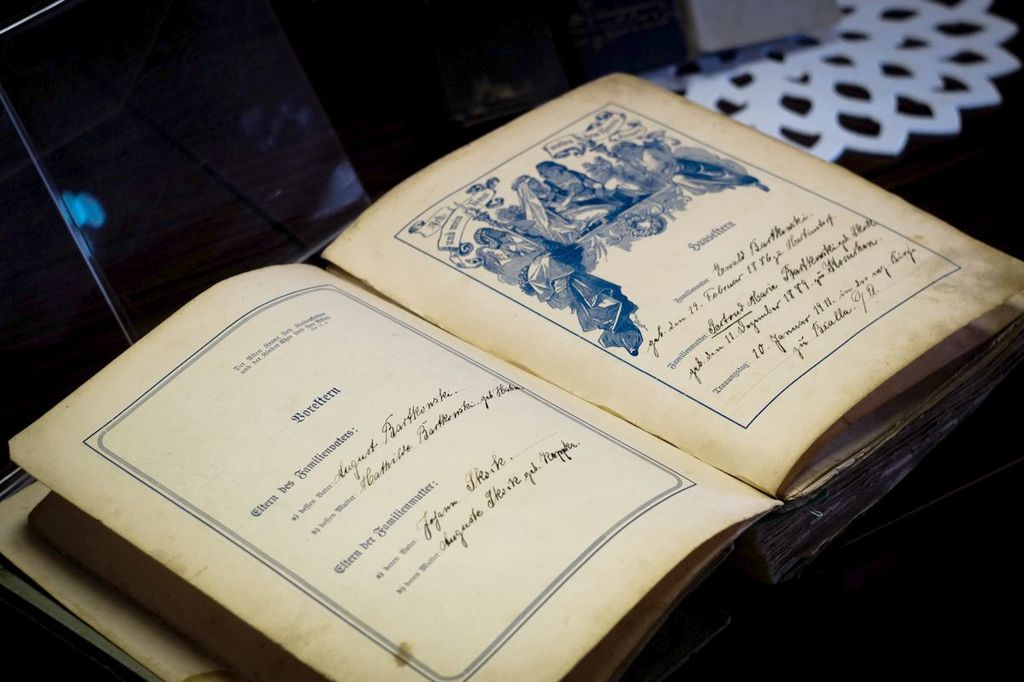 Der Alten Krone sind Kindeskinder
und der Kinder Ehre sind ihre Väter
Voreltern
Eltern des Familienvaters:
a) dessen Vater: August Bartkowski.
b) dessen Mutter: Mathilde Bartkowski geb.
Eltern der Familienmutter:
a) deren Vater: Johann Skock.
b) deren Mutter: Auguste Skock geb.
Ich
und mein
Hauseltern
Familienvater Ewald Bartkowski
geb. den 19. Februar 1886 zu
Familienmutter Gertrud Maria Bartkowski geb. Skock
geb. den 11. Dezember 1889. zu
Trauungstag 10. Januar 1911. in der evg. Kirche
zu Bialla